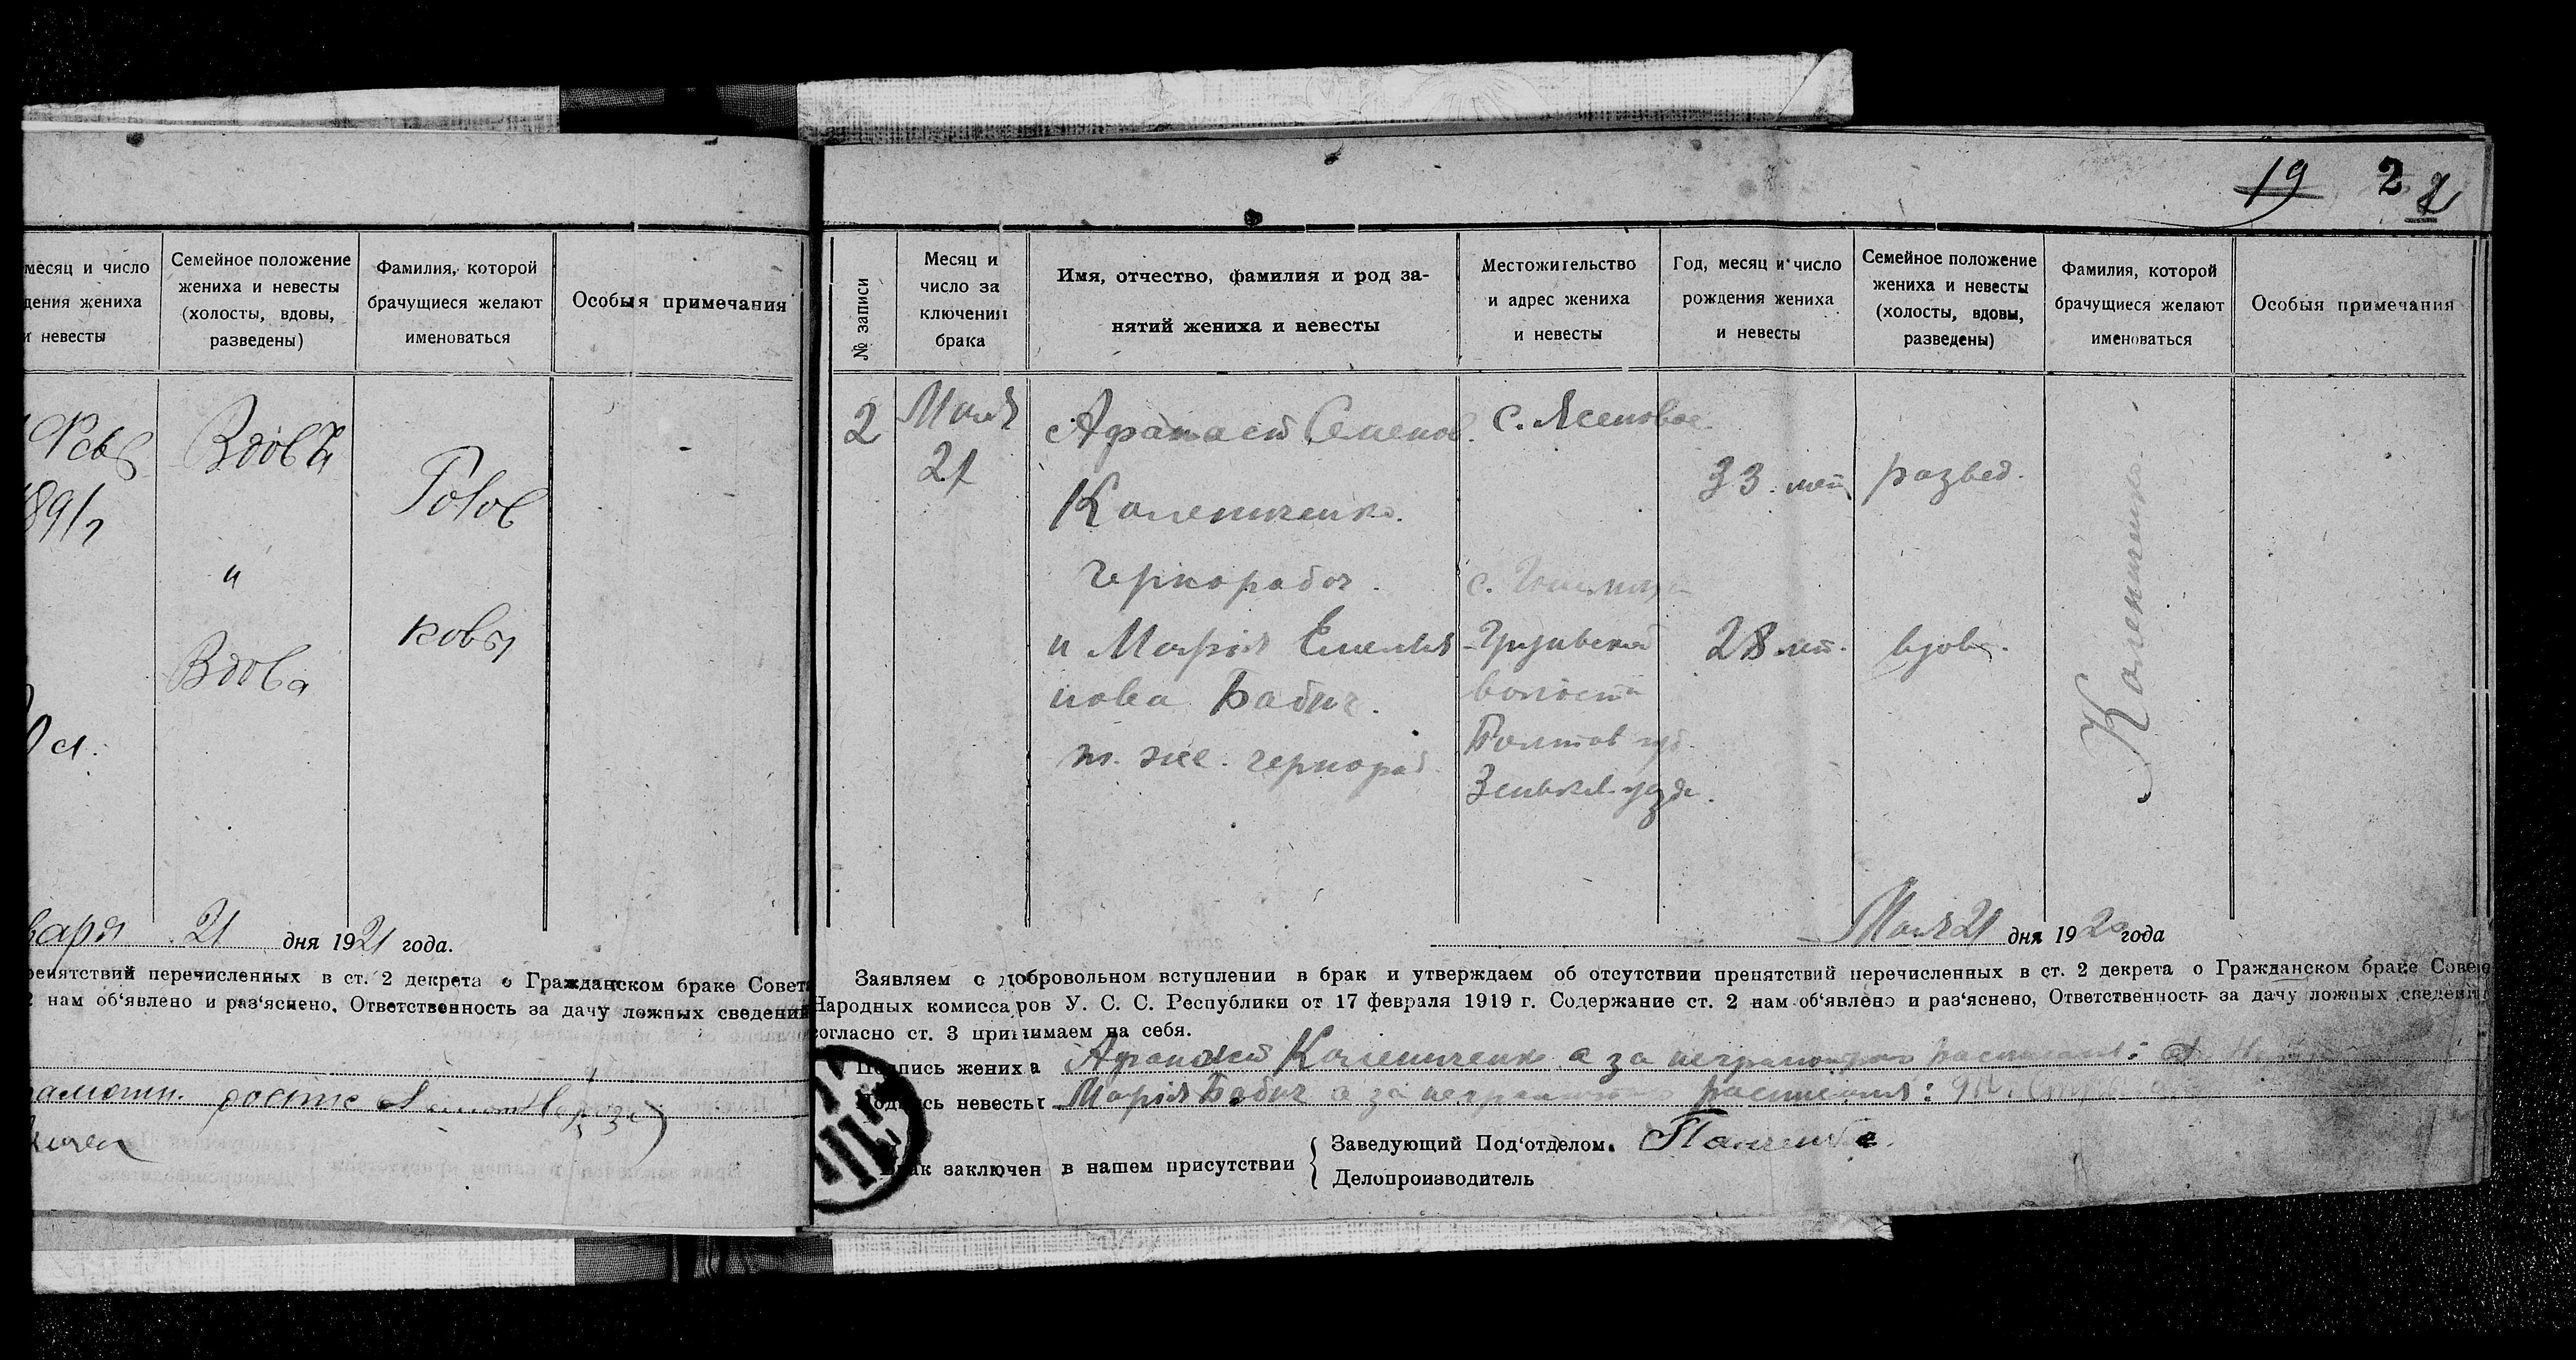 месяц и число
дения жениха
и невесты
Семейное положение
жениха и невесты
(холосты, вдовы,
разведены)
Фамилия, которой
брачущиеся желают
именоваться
Особыя примечания
Вдовъ
"
Вдова
ковы
-
варя 21 дня 1921 года.
репятствий перечисленных в ст. 2 декрета о Гражданском браке Совета
2 нам об‘явлено и раз‘яснено. Ответственность за дачу ложных сведений
19 2 2
№ записи
Месяц и
число за
ключения
брака
Имя, отчество, фамилия и род за-
нятий жениха и невесты
Местожительство
и адрес жениха
и невесты
Год, месяц и число
рождения жениха
и невесты
Семейное положение
жениха и невесты
(холосты, вдовы,
разведены)
Фамилия, которой
брачущиеся желают
именоваться
Особыя примечания
2
Мая
21
Афанасій Семенов.
Коленченко.
чернорабоч.
и Марія Емелья
нова Бабич.
т. же. чернораб.
с. Ясеновое
с.
волости
Полтав губ.
Зеньков уезда.
33 лет
развед.
28 лет.
вдова.
Мая 21 дня 1920 года
Заявляем о добровольном вступлении в брак и утверждаем об отсутствии препятствий перечисленных в ст. 2 декрета о Гражданском браке Совета
Народных комиссаров У. С. С. Республики от 17 февраля 1919 г. Содержание ст. 2 нам об‘явлено и раз‘яснено, Ответственность за дачу ложных сведений
согласно ст. 3 принимаем на себя.
Подпись жениха Афанасій Коленченко а за неграмотного расписался:
Подпись невесты Марія Бабич а за неграмотную расписался:
Брак заключен в нашем присутствии
Заведующий Под‘отделом.
Делопроизводитель